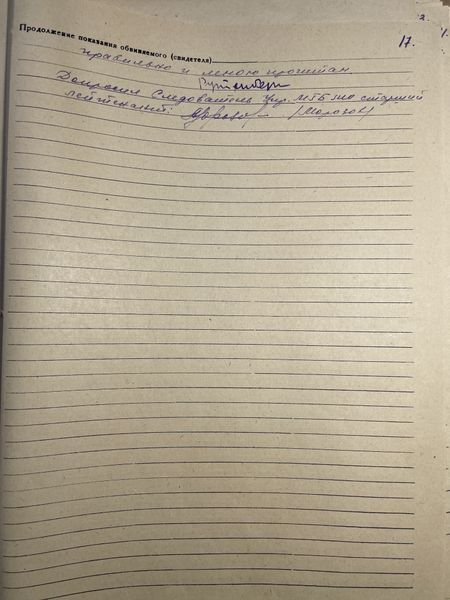 2.
17.
Продолжение показания обвиняемого (свидетеля)
правильно и мною прочитан.
Допросил Следователь Упр. МГБ старший
лейтенант: (Морозов)